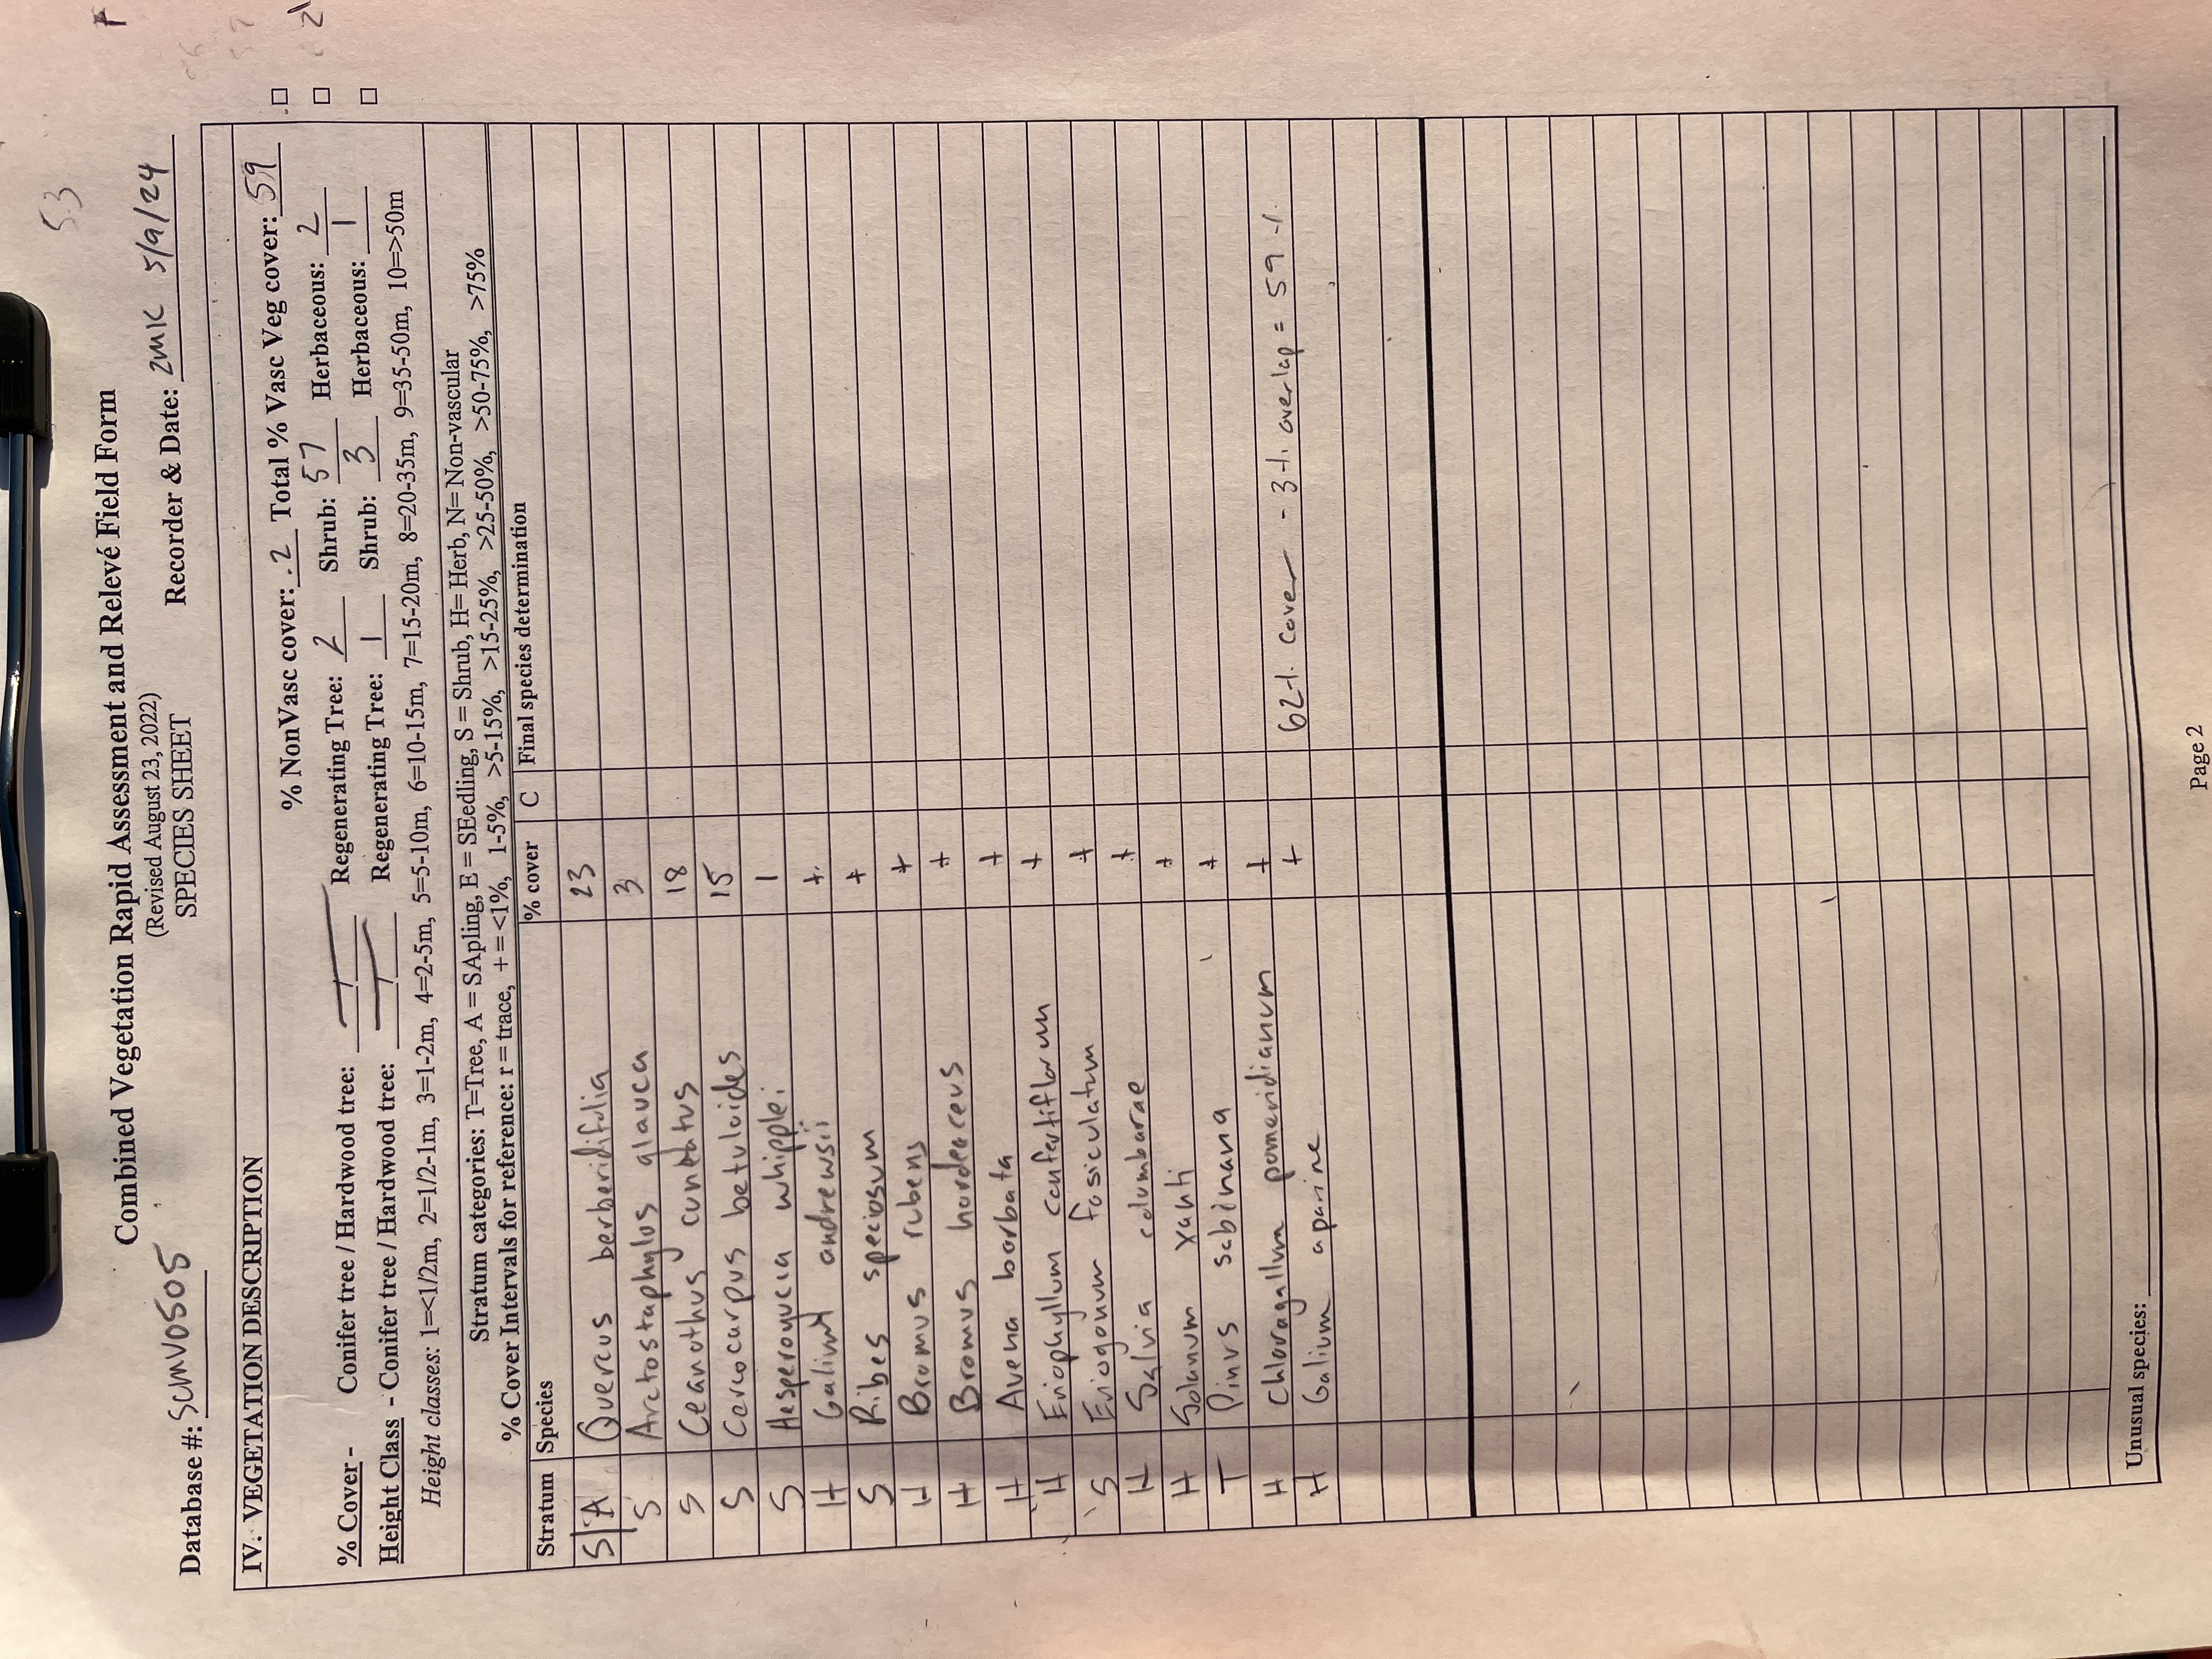 53
Combined Vegetation Rapid Assessment and Relevé Field Form
(Revised August 23, 2022)
SPECIES SHEET
Database #: SCMV0505 Recorder & Date: ZMK 5/9/24
IV. VEGETATION DESCRIPTION
% NonVasc cover: .2 Total % Vasc Veg cover: 59 □
% Cover - Conifer tree / Hardwood tree: / Regenerating Tree: 2 Shrub: 57 Herbaceous: 2 □
Height Class - Conifer tree / Hardwood tree: / Regenerating Tree: 1 Shrub: 3 Herbaceous: 1 □
Height classes: 1=<1/2m, 2=1/2-1m, 3=1-2m, 4=2-5m, 5=5-10m, 6=10-15m, 7=15-20m, 8=20-35m, 9=35-50m, 10=>50m
Stratum categories: T=Tree, A = SApling, E = SEedling, S = Shrub, H= Herb, N= Non-vascular
% Cover Intervals for reference: r = trace, + = <1%, 1-5%, >5-15%, >15-25%, >25-50%, >50-75%, >75%
Stratum Species % cover C Final species determination
S/A Quercus berberidifolia 23
S Arctostaphylos glauca 3
S Ceanothus cuneatus 18
S Cercocarpus betuloides 15
S Hesperoyucca whipplei 1
H Galium andrewsii +
S Ribes speciosum +
H Bromus rubens +
H Bromus hordeaceus +
H Avena barbata +
H Eriophyllum confertiflorum +
S Eriogonum fasiculatum +
H Salvia columbarae +
H Solanum xanti +
T Pinus sabinana +
H Chloragallum pomeridianum +
H Galium aparine + 62% cover - 3% overlap = 59%
Unusual species:
Page 2